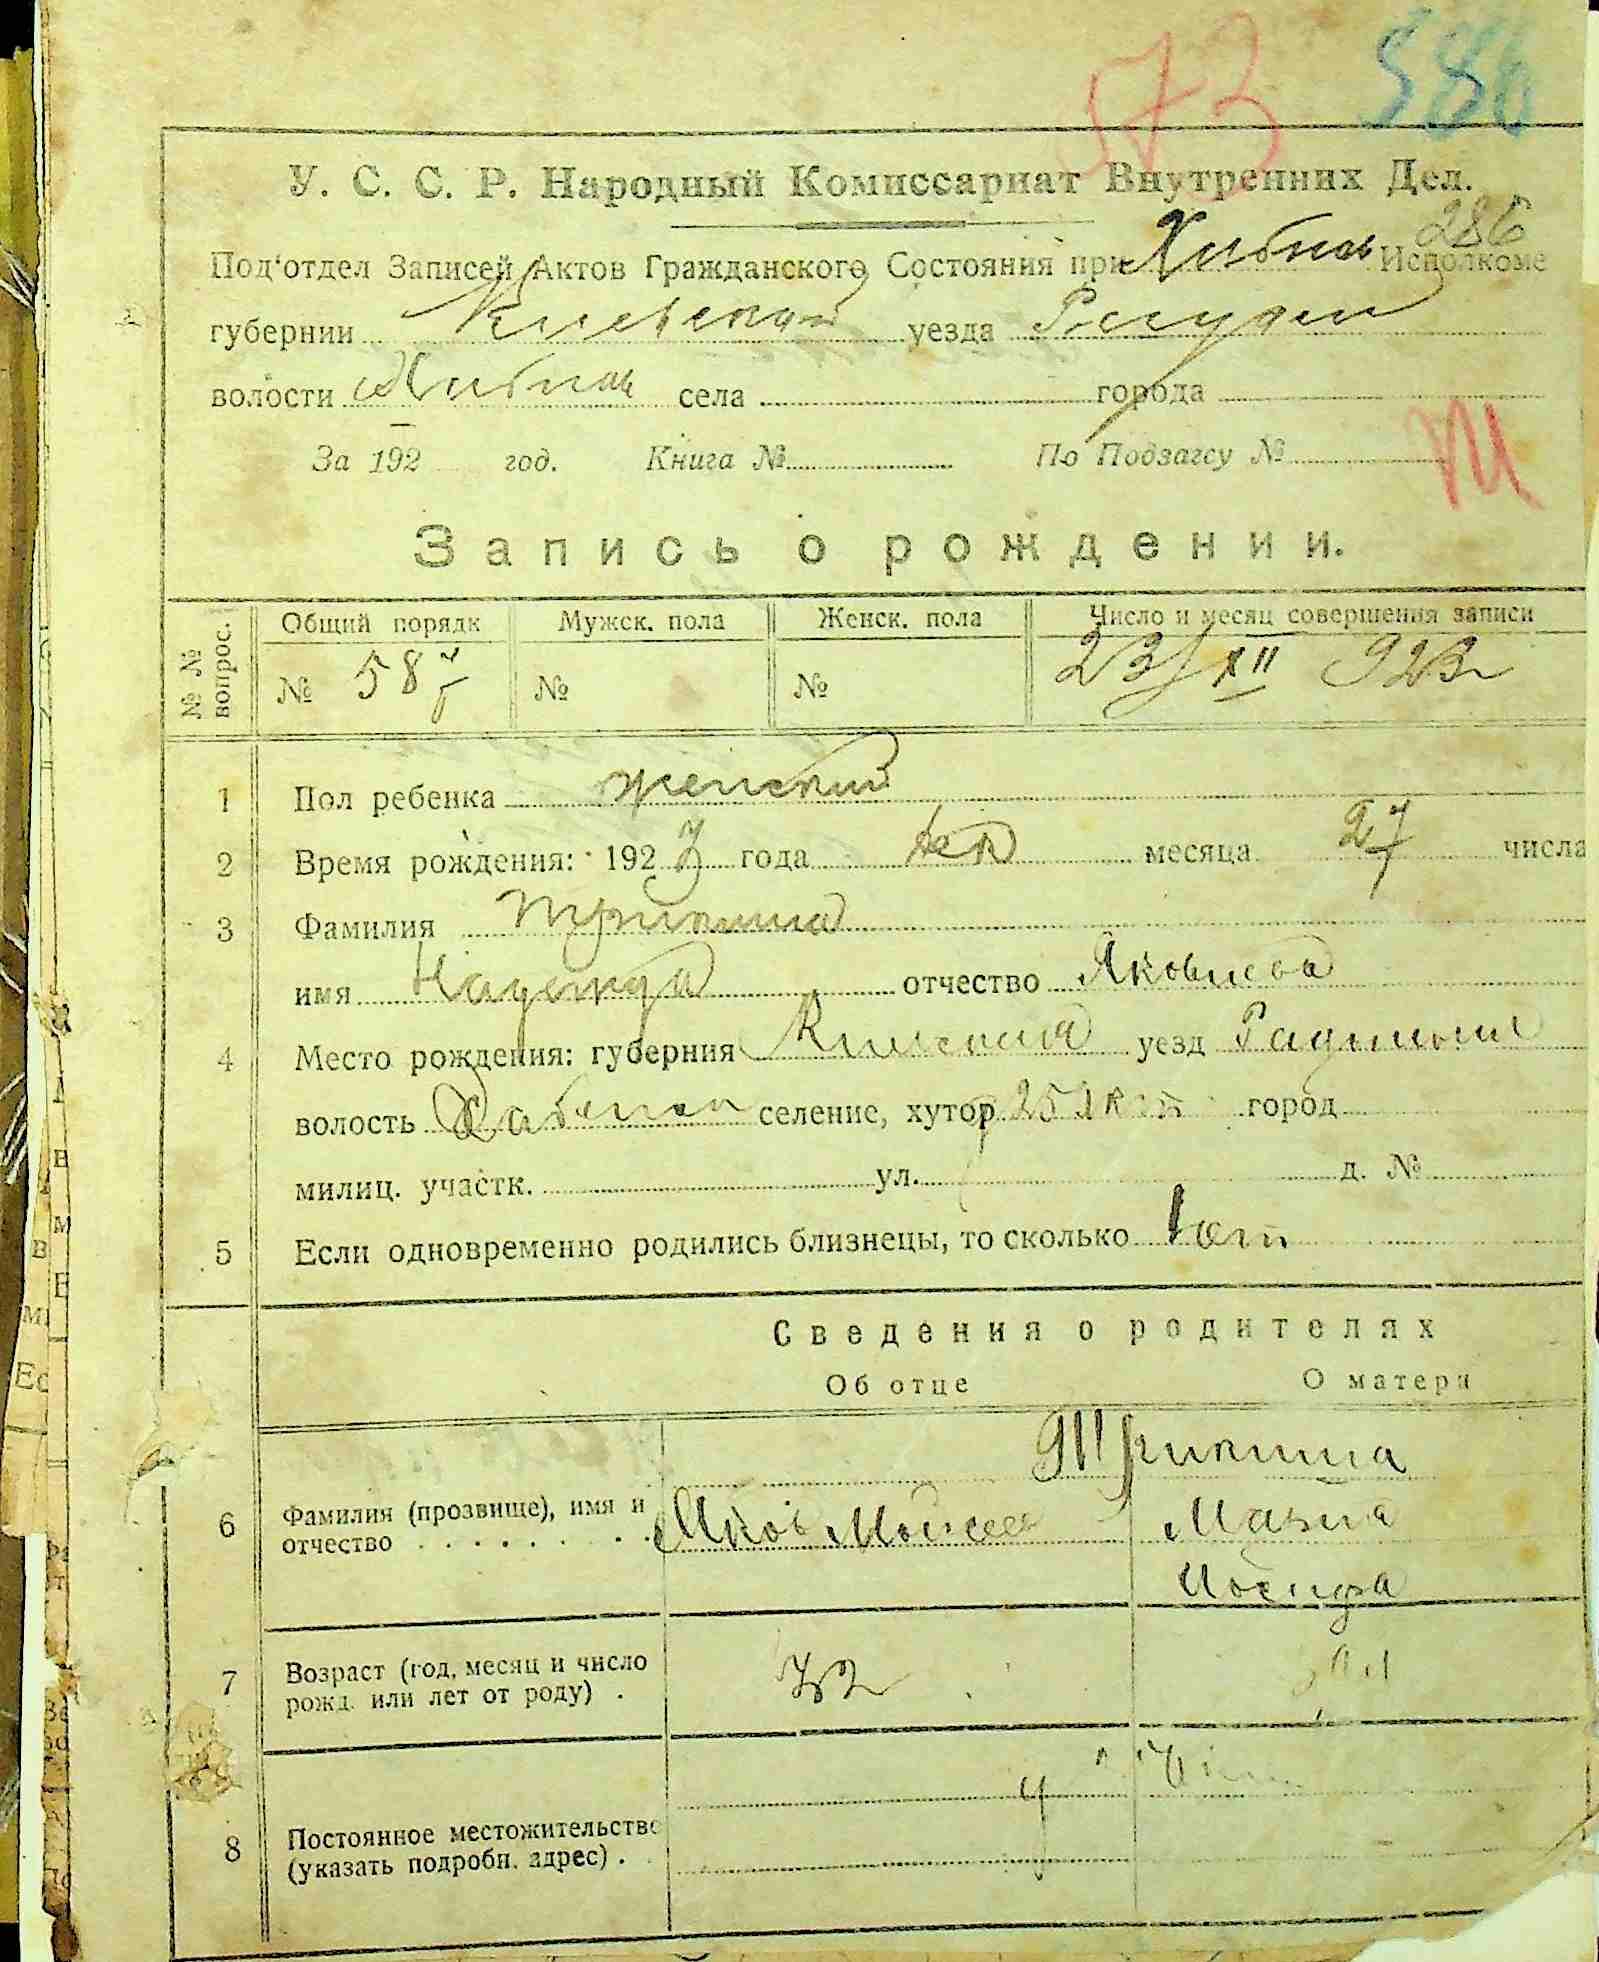 573 586
У. С. С. Р. Народный Комиссариат Внутренних Дел.
286
Под'отдел Записей Актов Гражданского Состояния при Хабнов Исполкоме
губернии Киевской уезда
волости Хабнов села города
За 192 год. Книга № По Подзагсу №
Запись о рождении.
№ № вопрос. Общий порядк Мужск. пола Женск. пола Число и месяц совершения записи
№ 587 № № 23/XII 923
1 Пол ребенка женский
2 Время рождения: 1923 года месяца 27 числа
3 Фамилия
имя Надежда отчество Яковлева
4 Место рождения: губерния Киевская уезд Радомысл
волость селение, хутор город
милиц. участк. ул. д. №
5 Если одновременно родились близнецы, то сколько 1
Сведения о родителях
Об отце О матери
6 Фамилия (прозвище), имя и
отчество Яков Моисеев Мария
7 Возраст (год, месяц и число
рожд. или лет от роду) . 32
8 Постоянное местожительство
(указать подробн. адрес) .